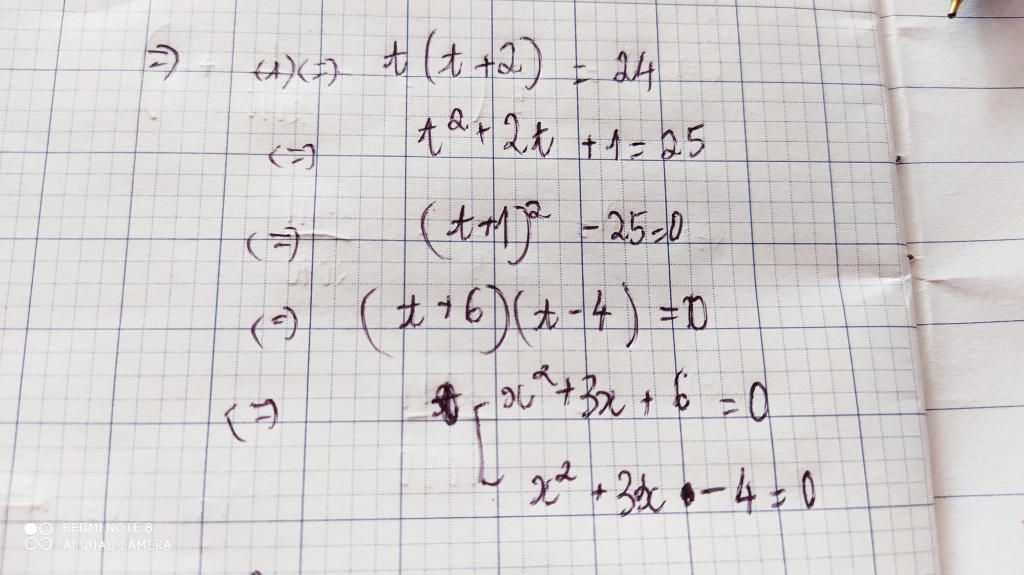 => (1) <=> t(t+2) = 24
<=> t² + 2t + 1 = 25
<=> (t+1)² - 25 = 0
<=> (t+6)(t-4) = 0
<=> [ x² + 3x + 6 = 0
x² + 3x - 4 = 0
REDMI NOTE 8
AI QUAD CAMERA